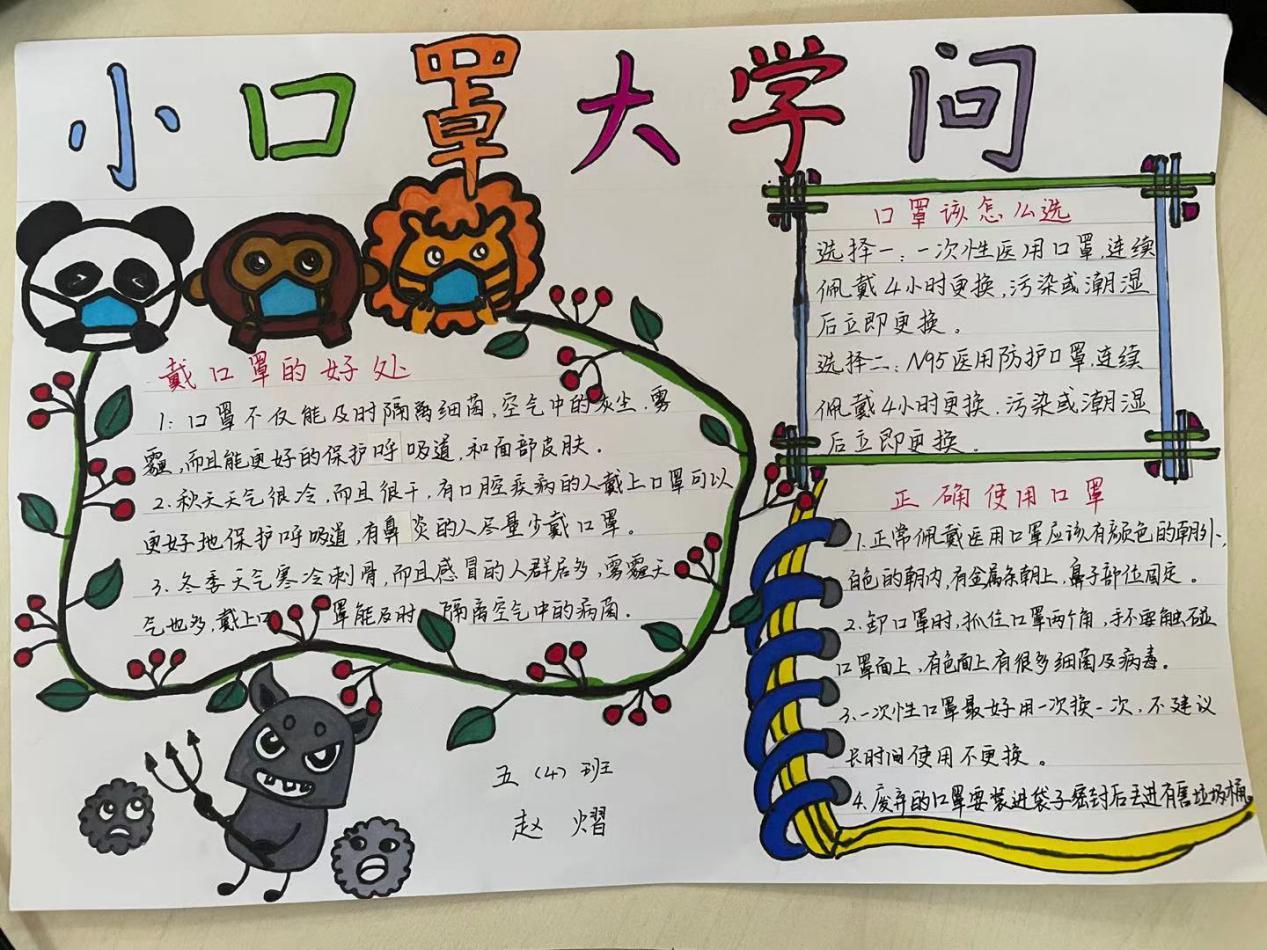 小口罩大学问
戴口罩的好处
1：口罩不仅能及时隔离细菌，空气中的灰尘，雾
霾，而且能更好的保护呼吸道，和面部皮肤。
2．秋天天气很冷，而且很干，有口腔疾病的人戴上口罩可以
更好地保护呼吸道，有鼻炎的人尽量少戴口罩。
3．冬季天气寒冷刺骨，而且感冒的人群居多，雾霾天
气也多，戴上口罩能及时隔离空气中的病菌．
口罩该怎么选
选择一：一次性医用口罩，连续
佩戴4小时更换，污染或潮湿
后立即更换。
选择二：N95医用防护口罩，连续
佩戴4小时更换．污染或潮湿
后立即更换．
正确使用口罩
1．正常佩戴医用口罩应该有颜色的朝外，
白色的朝内，有金属条朝上，鼻子部位固定。
2．卸口罩时，抓住口罩两个角，手不要触碰
口罩面上，有色面上有很多细菌及病毒。
3．一次性口罩最好用一次换一次，不建议
长时间使用不更换。
4．废弃的口罩要装进袋子密封后丢进有害垃圾桶。
五（4）班
赵熠